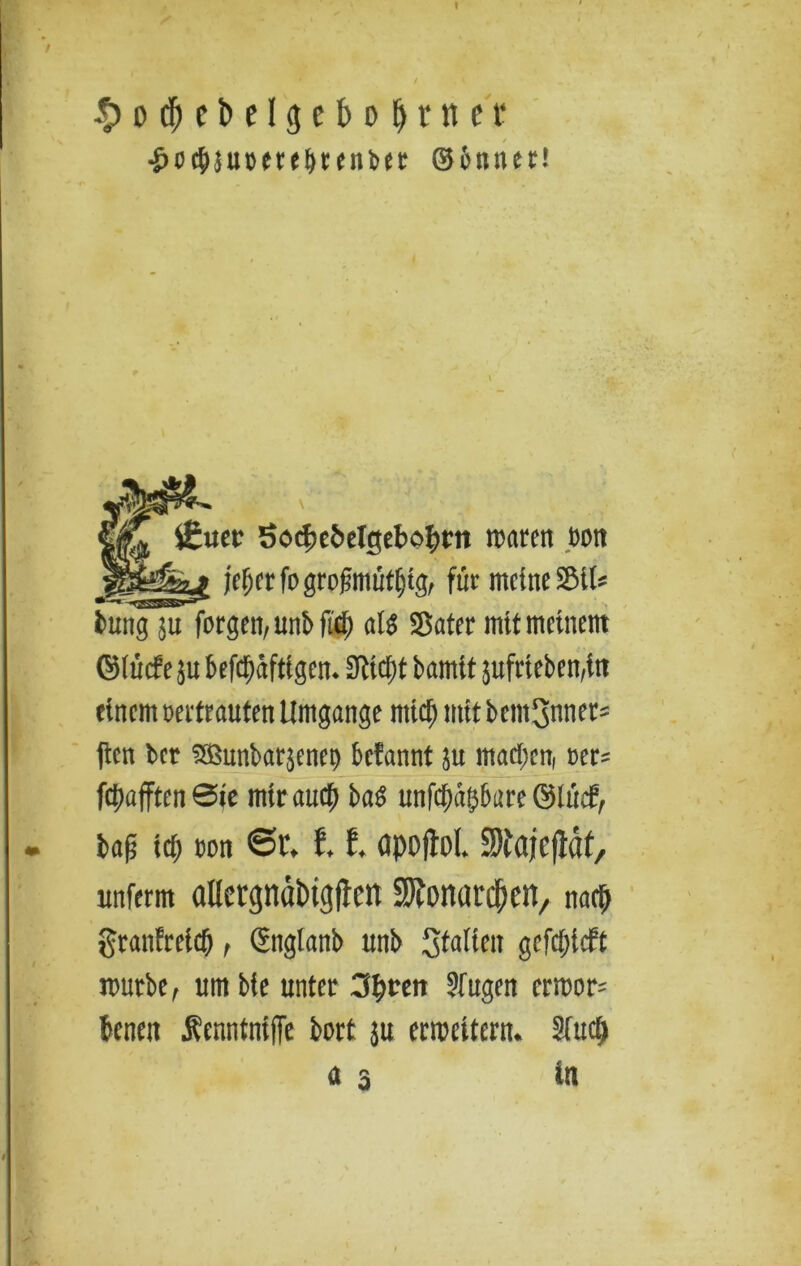 Hochedelgebohrner
Hochzuverehrender Gönner!
Euer Hochedelgebohrn waren von
jeher so großmüthig, für meine Bil-
dung zu sorgen, und sich als Vater mit meinem
Glücke zu beschäftigen. Nicht damit zufrieden, in
einem vertrauten Umgange mich mit dem Inner-
sten der Wundarzeney bekannt zu machen, ver-
schafften Sie mir auch das unschätzbare Glück,
daß ich von Sr. k. k. apostol. Majestät,
unserm allergnädigsten Monarchen, nach
Frankreich, England und Italien geschickt
wurde, um die unter Ihren Augen erwor-
benen Kenntnisse dort zu erweitern. Auch
a 3 in